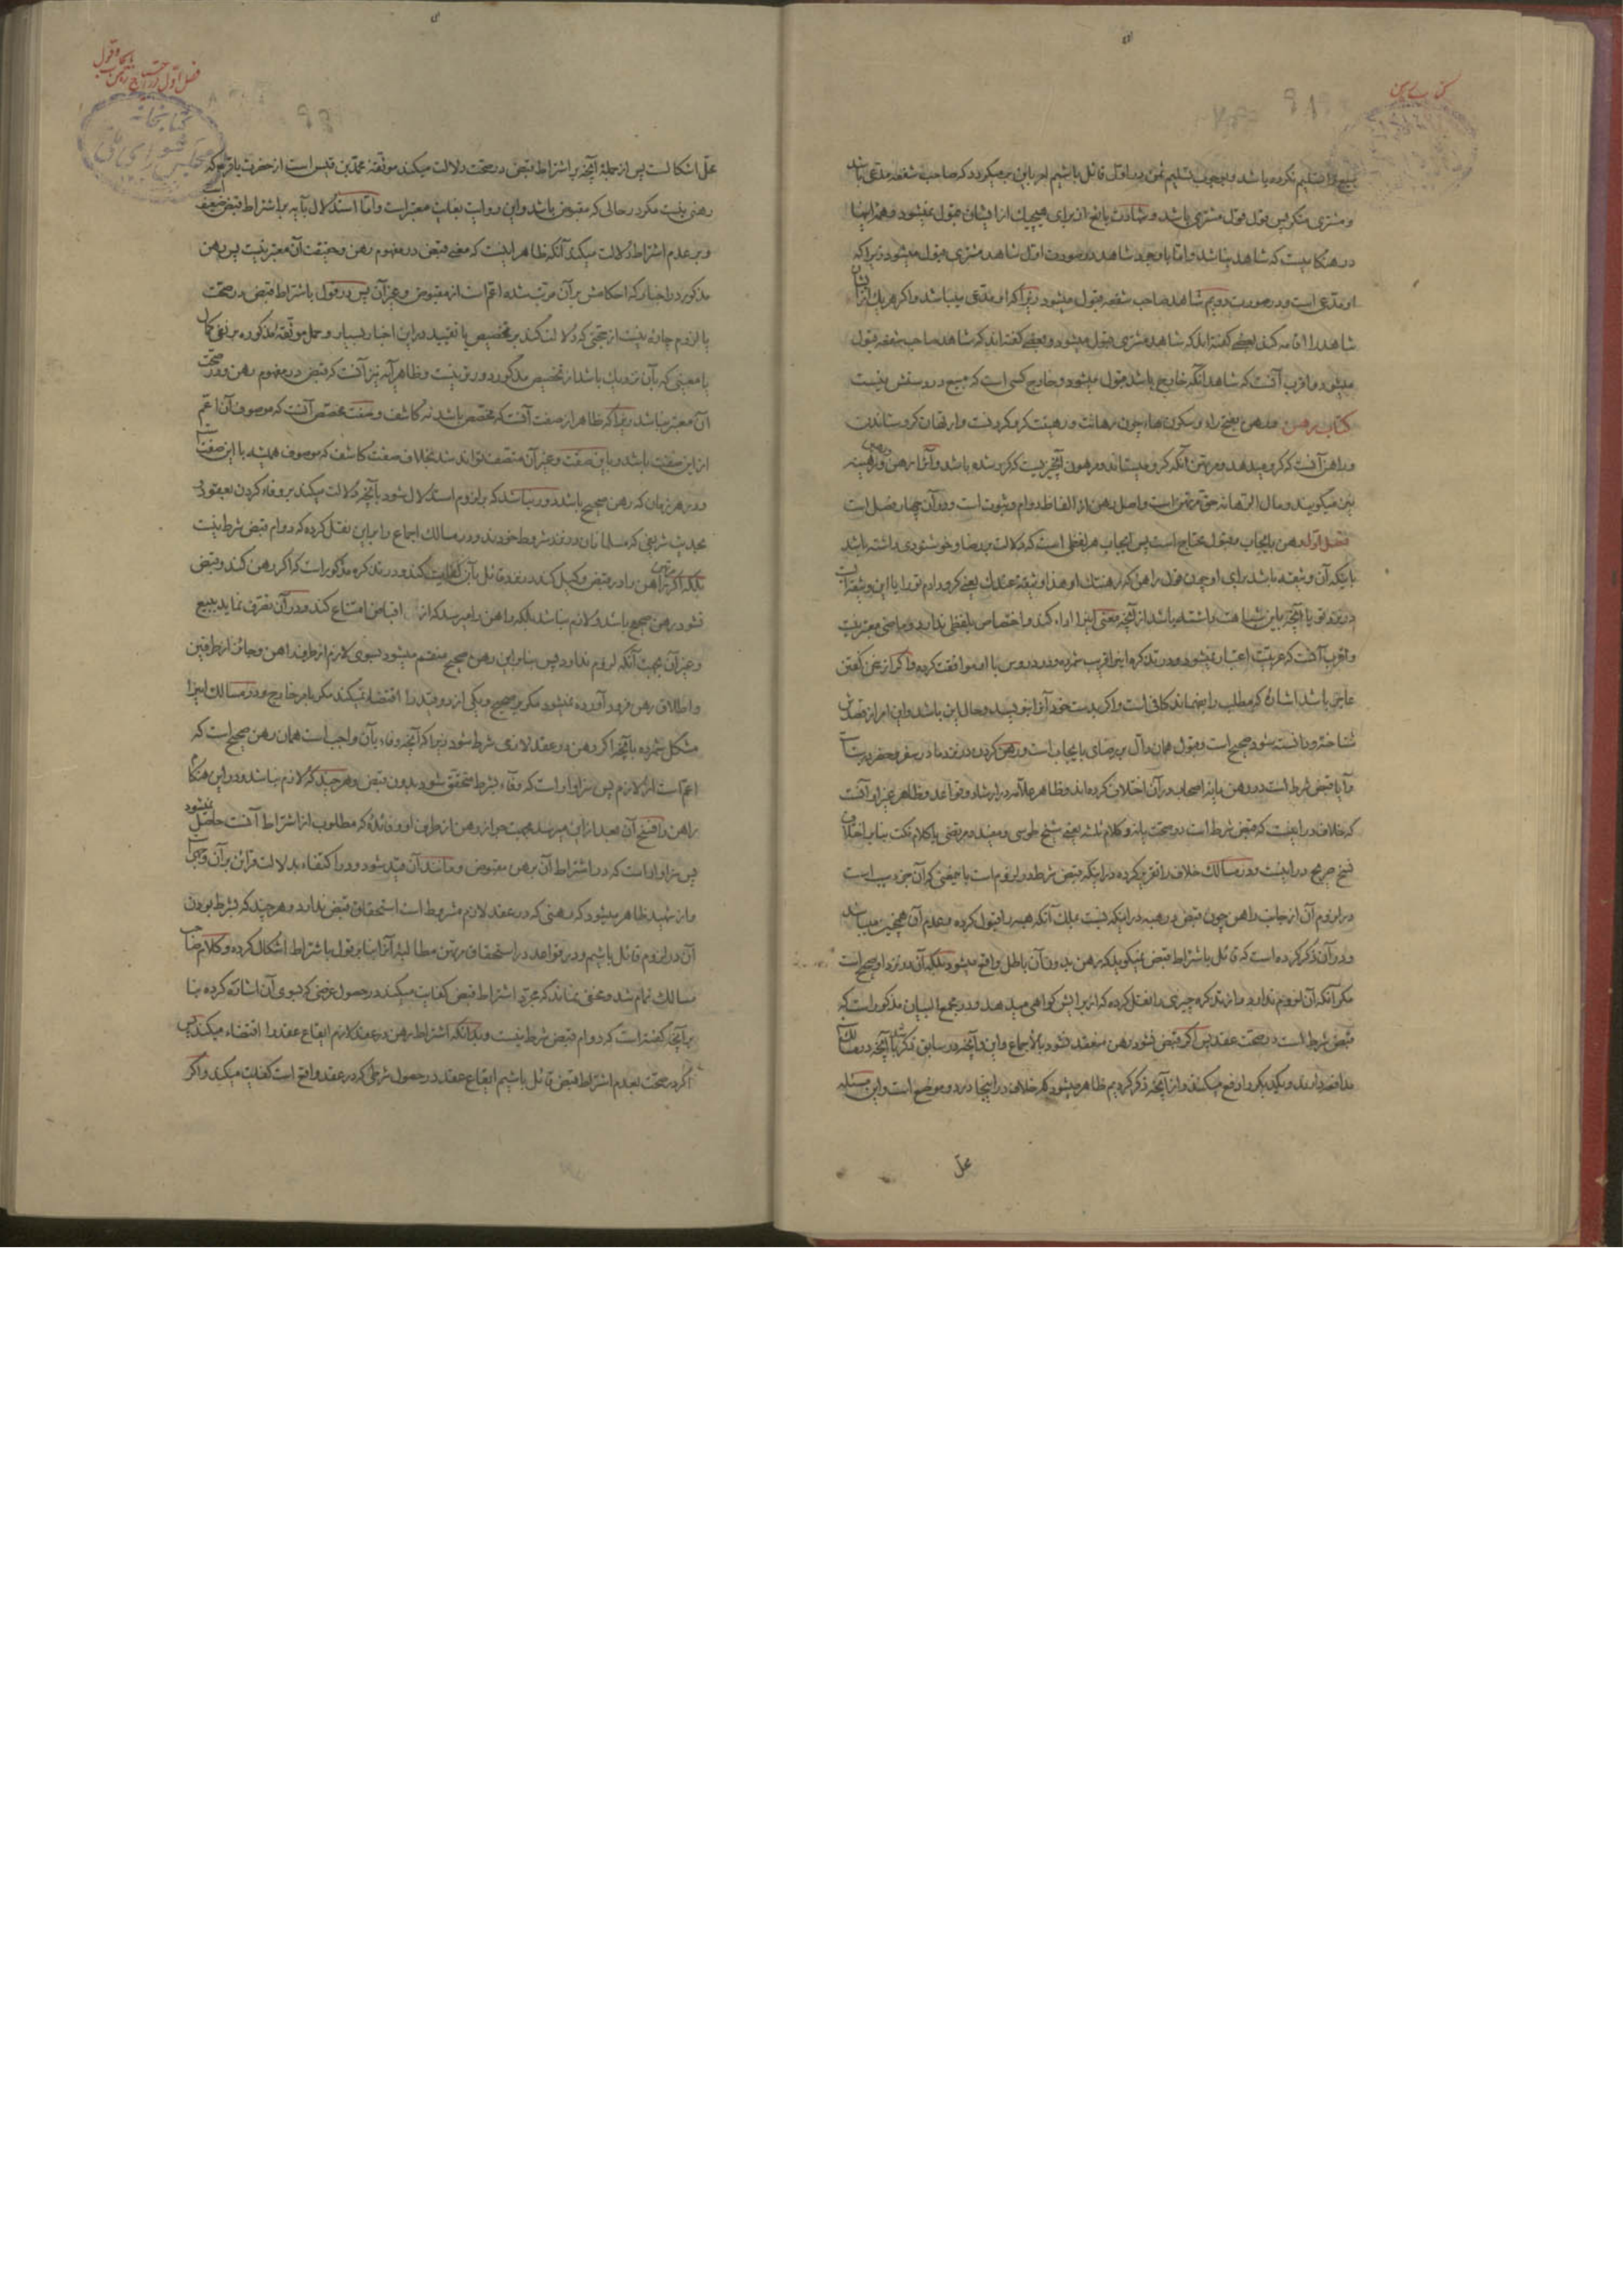 کتاب رهن
مبیع را تسلیم نکرده باشد و بوجوب تسلیم ثمن بر اول قائل باشیم امر باین برمیگردد که صاحب شفعه مدعی باشد
و مشتری منکر پس قول قول مشتری باشد و شهادت بایع از برای هیچیک از ایشان مقبول نمیشود و همه اینها
در هنگامیست که شاهد نباشد و اما با وجود شاهد در صورت اول شاهد مشتری مقبول میشود زیرا که
او مدعی است و در صورت دویم شاهد صاحب شفعه مقبول میشود زیرا که او مدعی میباشد و اگر هر یک از ایشان
شاهد را اقامه کند بعضی گفته‌اند که شاهد مشتری مقبول میشود و بعضی گفته‌اند که شاهد صاحب شفعه قبول
میشود و اقرب آنست که شاهد آنکه خارج باشد مقبول میشود و خارج کسی است که مبیع در دستش نیست
کتاب رهن و رهن بفتح راء و سکون هاء چون رهانت و رهینت گرو کردنست و ارتهان گرو ستاندن
و راهن آنست که گرو میدهد و مرتهن آنکه گرو میستاند و مرهون آنچیزیست که گرو شده باشد و آنرا رهن و رهینه
نیز میگویند و مال الرهانه حق مرتهن است و اصل رهن از الفاظ دوام و ثبوت است و در آن چهار فصل است
فصل اول رهن بایجاب و قبول محتاج است پس ایجاب هر لفظی است که دلالت بر رضا و خوشنودی داشته باشد
باینکه آن وثیقه باشد برای او چون قول راهن که رهنتک او هذا وثیقة عندک یعنی گرو دادم تو را یا این وثیقه است
در نزد تو یا آنچه باین شباهت داشته باشد از آنچه معنی اینرا اداء کند و اختصاص بلفظی ندارد و ماضی معتبر نیست
و اقرب آنست که عربیت اعتبار نمیشود و در تذکره اینرا اقرب شمرده و در دروس با او موافقت کرده و اگر از سخن گفتن
عاجز باشد اشاره که مطلب را بفهماند کافی است و اگر بدست خود آنرا بنویسد و حال این باشد و این امر از قصدش
شناخته و دانسته شود صحیح است و قبول همان دال بر رضای بایجاب است و رهن کردن در نزد ما در سفر و حضر درست
و آیا قبض شرط است در رهن یا نه اصحاب در آن اختلاف کرده‌اند و ظاهر علامه در ارشاد و قواعد و ظاهر غیر او آنست
که خلاف در اینست که قبض شرط است در صحت یا نه و کلام ثلثه یعنی شیخ طوسی و مفید و مرتضی یا کلام نکت بنا بر اختلاف
نسخ صریح در اینست و در مسالک خلاف را تقریر کرده در اینکه قبض شرط در لزوم است بامعنی که آن جزو سبب است
در لزوم آن از جانب راهن چون قبض در هبه در اینکه نسبت بملک آنکه هبه را قبول کرده و بعدم آن همچنین میباشد
و در آن ذکر کرده است که قائل باشتراط قبض نمیگوید که رهن بدون آن باطل واقع میشود بلکه آن در نزد او صحیح است
مگر آنکه آن لزوم ندارد و از تذکره چیزی را نقل کرده که از برایش گواهی میدهد و در مجمع البیان مذکور است که
قبض شرط است در صحت عقد پس اگر قبض نشود رهن منعقد نشود بالاجماع و این و آنچه در سابق ذکر شد با آنچه در مسالک
مدافعه دارند و یکدیگر را دفع میکنند و از آنچه ذکر کردیم ظاهر میشود که خلاف در اینجا در دو موضع است و این مسئله
محل
فصل اول در احتیاج رهن بایجاب و قبول
کتابخانه مجلس شورای ملی
محل اشکالست پس از جمله آنچه بر اشتراط قبض در صحت دلالت میکند موثقه محمد بن قیس است از حضرت باقر ع که
رهنی نیست مگر در حالی که مقبوض باشد و این روایت بغایت معتبر است و اما استدلال بآیه بر اشتراط قبض ضعیف است
و بر عدم اشتراط دلالت میکند آنکه ظاهر اینست که معنی قبض در مفهوم رهن و حقیقت آن معتبر نیست پس رهن
مذکور در اخبار که احکامش بر آن مرتب شده اعم است از مقبوض و غیر آن پس در قول باشتراط قبض در صحت
یا لزوم چاره نیست از حجتی که دلالت کند بر تخصیص یا تقیید در این اخبار بسیار و حمل موثقه مذکوره بر نفی کمال
یا معنیی که بآن نزدیک باشد از تخصیص مذکور دورتر نیست و ظاهر آیه نیز آنست که قبض در مفهوم رهن و در صحت
آن معتبر نباشد زیرا که ظاهر از صفت آنست که مخصص باشد نه کاشف و صفت مخصص آنست که موصوف آن اعم
از این صفت باشد و باین صفت و غیر آن متصف تواند شد بخلاف صفت کاشف که موصوف همیشه با این صفت است
و در هر زمان که رهن صحیح باشد دور نباشد که بر لزوم استدلال شود بآنچه دلالت میکند بر وفاء کردن بعقود و
بحدیث شریفی که مسلمانان در نزد شروط خودند و در مسالک اجماع را بر این نقل کرده که دوام قبض شرط نیست
بلکه اگر مرتهن راهن را در قبض وکیل کند در نزد قائل بآن کفایت کند و در تذکره مذکور است که اگر رهن کند و قبض
نشود رهن صحیح باشد و لازم نباشد بلکه راهن را میرسد که از اقباض امتناع کند و در آن تصرف نماید ببیع
و غیر آن بجهت آنکه لزوم ندارد پس بنا بر این رهن صحیح منقسم میشود بسوی لازم از طرف راهن و جائز از طرفین
و اطلاق رهن فرود آورده نمیشود مگر بر صحیح و یکی از دو قید را اقتضاء نمیکند مگر بامر خارج و در مسالک اینرا
مشکل شمرده بآنچه اگر رهن در عقد لازمی شرط شود زیرا که آنچه وفاء بآن واجب است همان رهن صحیح است که
اعم است از لازم پس سزاوار است که وفاء بشرط متحقق شود بدون قبض و هر چند که لازم نباشد و در این هنگام
راهن را فسخ آن بعد از آن میرسد بجهت جواز رهن از طرف او و فائده که مطلوب از اشتراط آنست حاصل نمیشود
پس سزاوار است که در اشتراط آن برهن مقبوض و مانند آن مقید شود و در اکتفاء بدلالت قرائن بر آن وجهی است
و از شهید ظاهر میشود که رهنی که در عقد لازم مشروط است استحقاق قبض ندارد و هر چند که بشرط بودن
آن در لزوم قائل باشیم و در قواعد در استحقاق مرتهن مطالبه آنرا بنا بر قول باشتراط اشکال کرده و کلام صاحب
مسالک تمام شد و مخفی نماند که مجرد اشتراط قبض کفایت میکند در حصول غرضی که بسوی آن اشاره کرده بنا
بر آنچه گفته است که دوام قبض شرط نیست و بدانکه اشتراط رهن در عقد لازم ایقاع عقد را اقتضاء میکند پس
اگر در صحت بعدم اشتراط قبض قائل باشیم ایقاع عقد در حصول شرطی که در عقد واقع است کفایت میکند و اگر